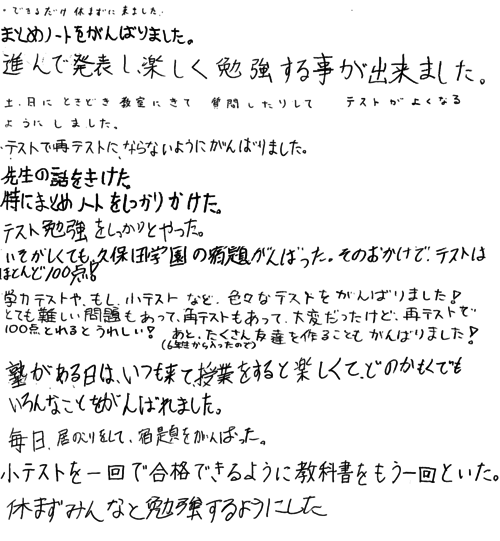 ・できるだけ休まずに来ました。
まとめノートをがんばりました。
進んで発表し、楽しく勉強する事が出来ました。
土、日にときどき教室にきて 質問したりして テストがよくなる
ようにしました。
・テストで再テストにならないようにがんばりました。
先生の話をきけた。
特にまとめノートをしっかりかけた。
テスト勉強をしっかりとやった。
いそがしくても、久保田学園の宿題がんばった。そのおかげで、テストは
ほとんど100点!
学力テストや、もし、小テストなど、色々なテストをがんばりました!
とても難しい問題もあって、再テストもあって、大変だったけど、再テストで
100点とれるとうれしい! あと、たくさん友達を作ることもがんばりました!
(6年生から入ったので)
塾がある日は、いつも来て、授業をすると楽しくて、どのかもくでも
いろんなことをがんばれました。
毎日、居のこりをして、宿題をがんばった。
小テストを一回で合格できるように教科書をもう一回といた。
休まずみんなと勉強するようにした